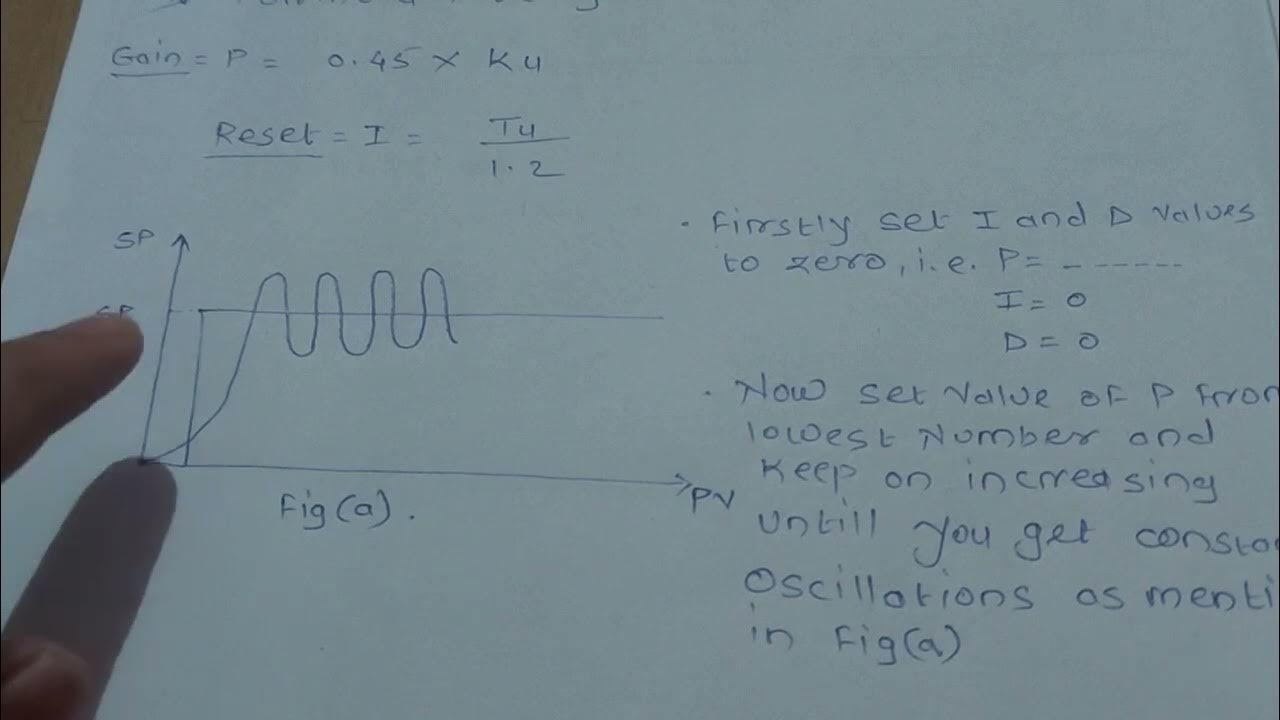 Gain = P = 0.45 × Ku
Reset = I = Tu
1.2
SP
SP
PV
Fig(a).
. Firstly set I and D values
to zero, i.e. P= - - - - - - -
I = 0
D = 0
. Now set value of P from
lowest Number and
Keep on increasing
Untill you get consta
Oscillations as menti
in Fig(a)